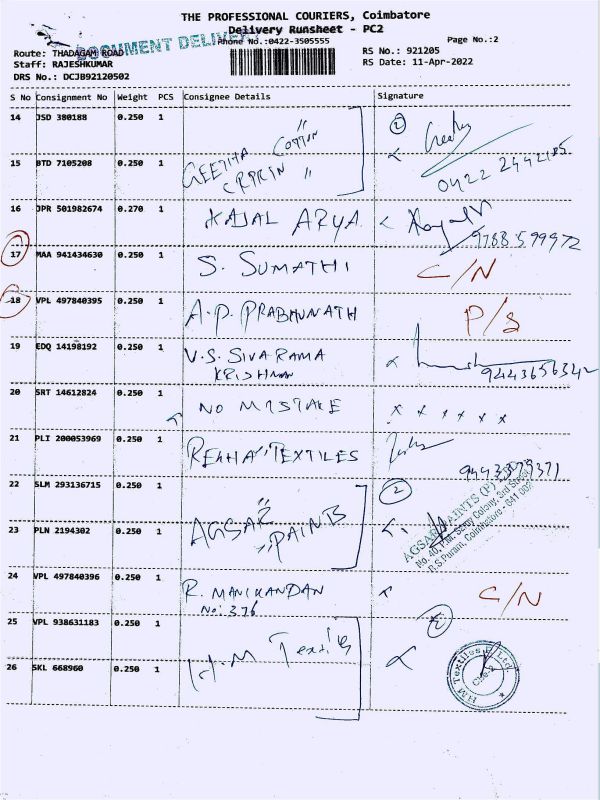 THE PROFESSIONAL COURIERS, Coimbatore
DOCUMENT DELIVERY
Delivery Runsheet - PC2
Phone No.:0422-3505555
Page No.:2
Route: THADAGAM ROAD
RS No.: 921205
Staff: RAJESHKUMAR
RS Date: 11-Apr-2022
DRS No.: DCJB92120502
S No Consignment No Weight PCS Consignee Details Signature
14 JSD 380188 0.250 1 COTTON " 2
15 BTD 7105208 0.250 1 GEETHA "
0422 2442185
16 JPR 501982674 0.270 1 KAJAL ARYA
9788599972
17 MAA 941434630 0.250 1 S. SUMATHI C/N
18 VPL 497840395 0.250 1 A.P. PRABHUNATH P/S
19 EDQ 14198192 0.250 1 V.S. SIVARAMA
KRISHNAN 9443656342
20 SRT 14612824 0.250 1 NO MISTAKE x x x x x x
21 PLI 200053969 0.250 1 REKHA TEXTILES
22 SLM 293136715 0.250 1 2
23 PLN 2194302 0.250 1 AGSAR PAINTS
AGSAR PAINTS (P) LTD
No. 40, Colony, 3rd Street
R.S.Puram, Coimbatore - 641 002
24 VPL 497840396 0.250 1 R. MANIKANDAN C/N
No: 376
25 VPL 938631183 0.250 1 H M Textiles 2
26 SKL 668960 0.250 1
H.M Textiles P Ltd.
Cbe-2